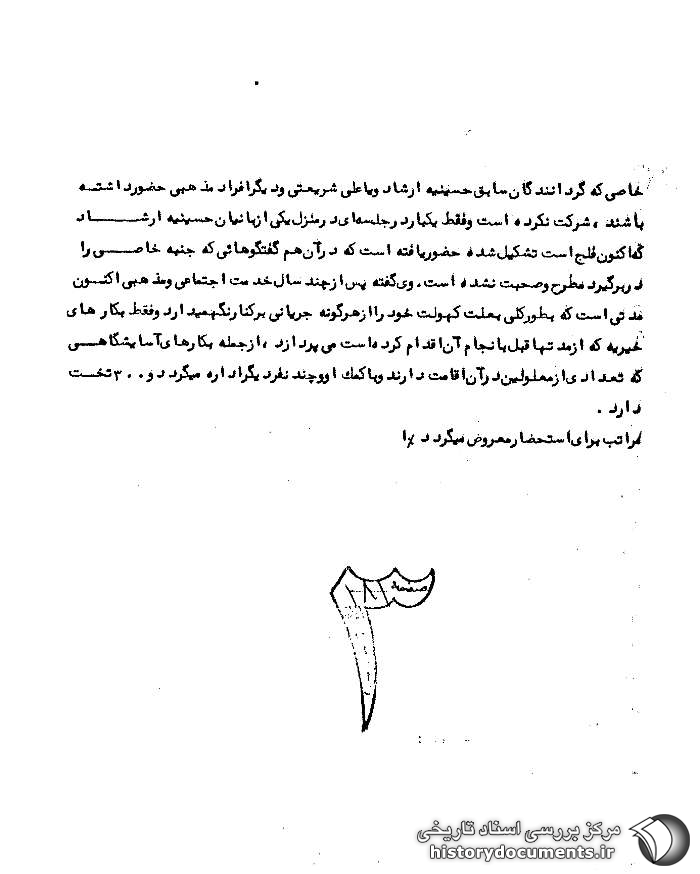 خاصی که گردانندگان سابق حسینیه ارشاد ویاعلی شریعتی ودیگرافراد مذهبی حضورداشته
باشند ، شرکت نکرده است وفقط یکبار درجلسه‌ای درمنزل یکی ازبانیان حسینیه ارشاد
که‌اکنون فلج است تشکیل شده حضوریافته است که درآن هم گفتگوهائی که جنبه خاصی را
دربرگیرد مطرح وصحبت نشده است . وی‌گفته پس ازچند سال خدمت اجتماعی ومذهبی اکنون
مدتی است که بطورکلی بعلت کهولت خود راازهرگونه جریانی برکنارنگهمیدارد وفقط بکار های
خیریه که ازمدتها قبل بانجام آن‌اقدام کرده‌است می پردازد ، ازجمله بکارهای‌آسایشگاهی
که تعدادی ازمعلولین درآن‌اقامت دارند وباکمک اووچند نفردیگراداره میگردد و ۳۰۰ تخت
دارد .
مراتب برای‌استحضارمعروض میگردد
صفحه
۳
مرکز بررسی اسناد تاریخی
historydocuments.ir